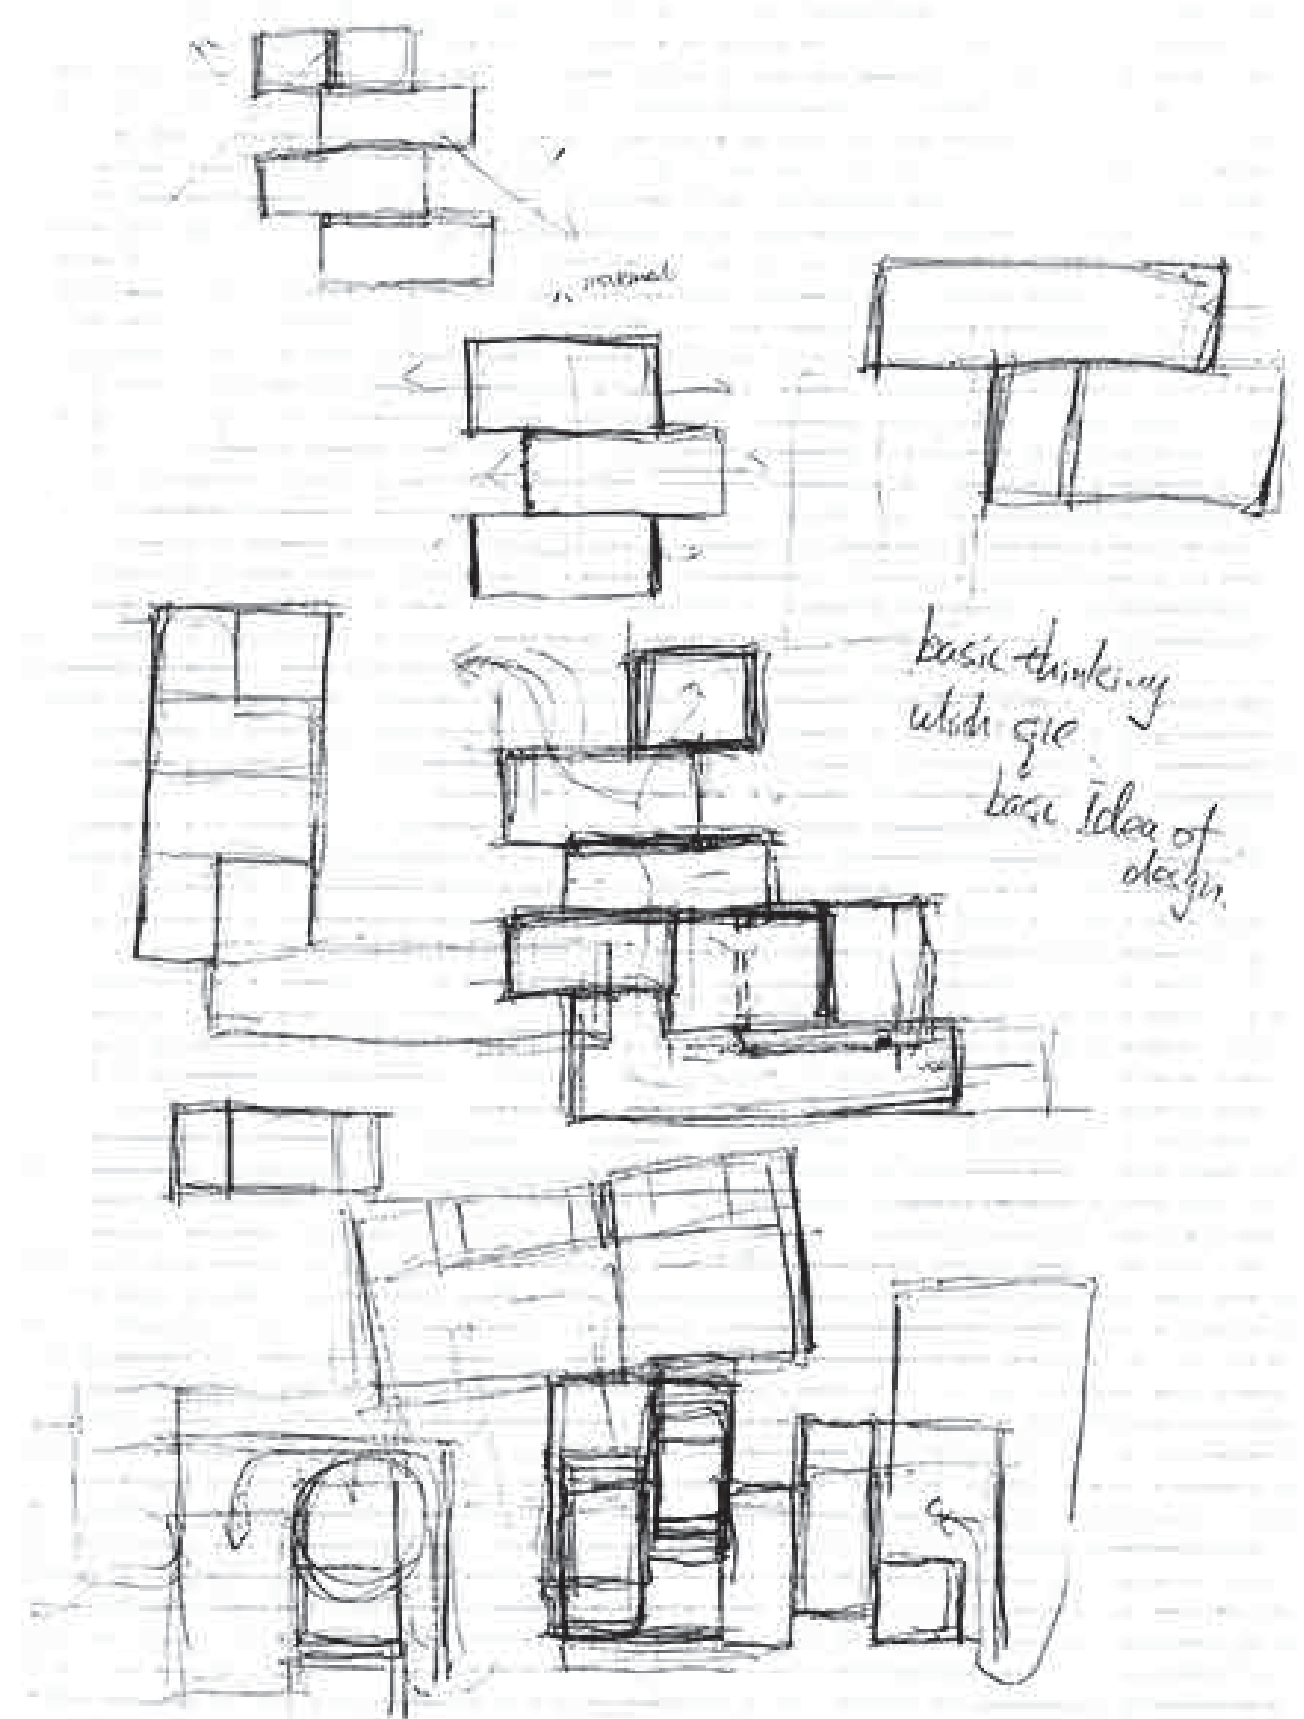 basic thinking
which gie
basic Idea of
design.